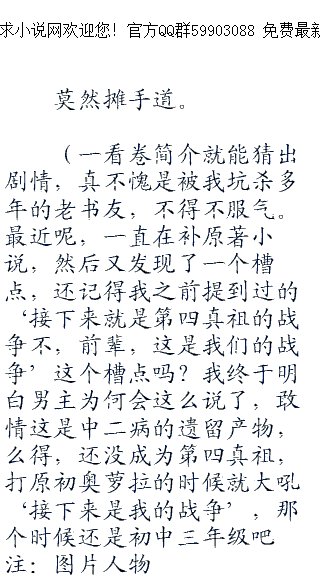 求小说网欢迎您！官方QQ群59903088 免费最新
莫然摊手道。
（一看卷简介就能猜出
剧情，真不愧是被我坑杀多
年的老书友，不得不服气。
最近呢，一直在补原著小
说，然后又发现了一个槽
点，还记得我之前提到过的
‘接下来就是第四真祖的战
争不，前辈，这是我们的战
争’这个槽点吗？我终于明
白男主为何会这么说了，敢
情这是中二病的遗留产物，
么得，还没成为第四真祖，
打原初奥萝拉的时候就大吼
‘接下来是我的战争’，那
个时候还是初中三年级吧
注：图片人物